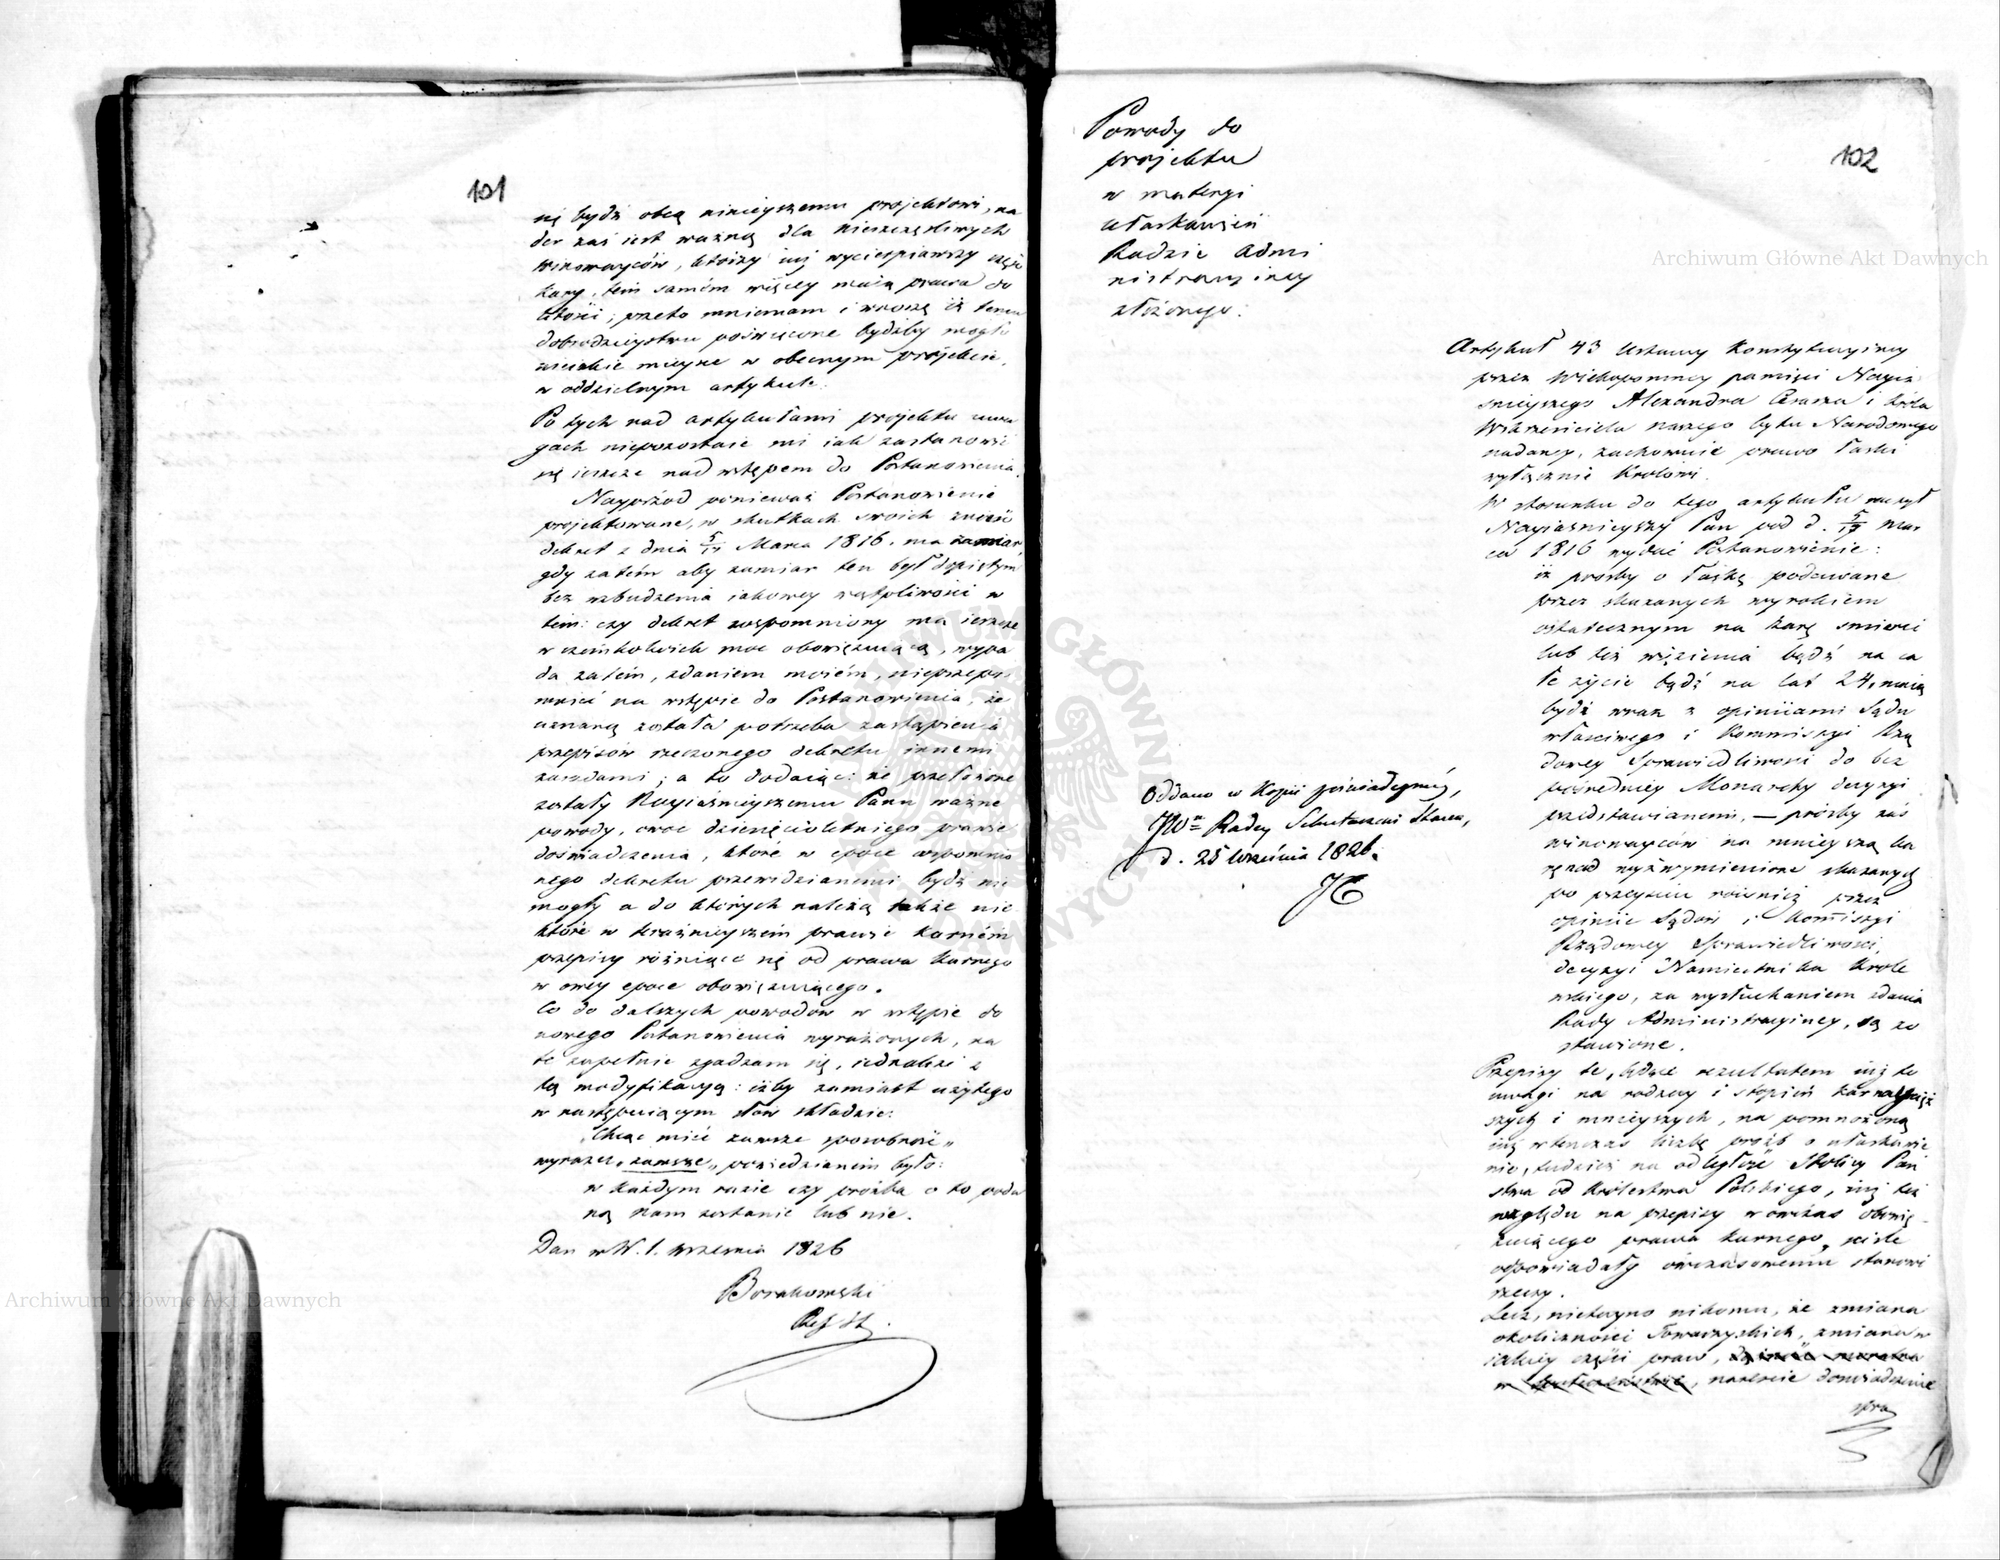 101
się bydź obcą ninieyszemu projektowi, na
der zaś iest ważną dla nieszczęśliwych
winowayców, którzy iuż wycierpiawszy część
kary, tém samém więcey maią prawa do
litości; przeto mniemam i wnoszę iż temu
dobrodzieystwu poświęcone bydźby mogło
mieysce w obecnym projekcie,
w oddzielnym artykule.
Po tych nad artykułami projektu uwa
gach niepozostaie mi iak zastanowić
się ieszcze nad wstępem do Postanowienia.
Nayprzód ponieważ Postanowienie
projektowane, w skutkach swoich znieść
dekret z dnia 5/17 Marca 1816. ma zamiar,
gdy zatém aby zamiar ten był dopiętym
bez wzbudzenia iakowey wątpliwości w
tém: czy dekret wspomniony ma ieszcze
w czemkolwiek moc obowiązuiącą, wypa
da zatém, zdaniem moiém, nieprzepo
mnieć na wstępie do Postanowienia, że
uznaną została potrzeba zastąpienia
przepisów rzeczonego dekretu innemi
zasadami; a to dodaiąc: że przełożone
zostały Nayiaśnieyszemu Panu ważne
powody, owoc dziesięcioletniego prawie
doświadczenia, które w epoce wspomnio
nego dekretu przewidzianemi bydź nie
mogły a do których należą także nie
które w teraźnieyszém prawie karném
przepisy różniące się od prawa karnego
w owey epoce obowiązuiącego.
Co do dalszych powodów w wstępie do
nowego Postanowienia wyrażonych, na
te zupełnie zgadzam się, iednakże z
tą modyfikacyą: iżby zamiast użytego
w następuiącym słów składzie:
„Chcąc mieć zawsze sposobność„
wyrazu „zawsze„ powiedzianém było:
w każdym razie czy prośba o to poda
ną Nam zostanie lub nie.
Dan w W. 1. września 1826
Borakowski
Ref St.
102
Powody do
projektu
w materyi
ułaskawień
Radzie Admi
nistracyiney
złożonego.
Artykuł 43 Ustawy Konstytucyiney
przez Wiekopomney pamięci Nayia
śnieyszego Alexandra Cesarza i Króla
Wskrzesiciela naszego bytu Narodowego
nadaney, zachowuie prawo łaski
wyłącznie Królowi.
W stosunku do tego artykułu raczył
Nayiaśnieyszy Pan pod d. 5/17 Mar
ca 1816 wydać Postanowienie:
iż prośby o łaskę podawane
przez skazanych wyrokiem
ostatecznym na karę śmierci
lub też więzienia bądź na ca
łe życie bądź na lat 24, maią
bydź wraz z opiniiami Sądu
właściwego i Kommissyi Rzą
dowey Sprawiedliwości do bez
pośredniey Monarchy decyzyi
przedstawianemi, — prośby zaś
winowayców na mnieyszą ka
rę nad wyżwymienione skazanych
po przeyściu również przez
opiniie Sądów i Kommissyi
Rządowey Sprawiedliwości,
decyzyi Namiestnika Króle
wskiego, za wysłuchaniem zdania
Rady Administracyiney, są zo
stawione.
Przepisy te, będąc rezultatem iuż to
uwagi na rodzay i stopień kar
szych i mnieyszych, na pomnożoną
iuż wtenczas liczbę próźb o ułaskawie
nie, tudzież na odległość Stolicy Pań
stwa od Królestwa Polskiego, iuż też
względu na przepisy wówczas obowią
zuiącego prawa karnego, ściśle
odpowiadały ówczasowemu stanowi
rzeczy.
Lecz, nietayno nikomu, że zmiana
okoliczności Towarzyskich, zmiana w
iakiey części praw,
, nareszcie doświadczenie
spra
Oddano w Kopii poświadczonéy,
JWmu Radcy Sekretarzowi Stanu,
d. 25 Września 1826.